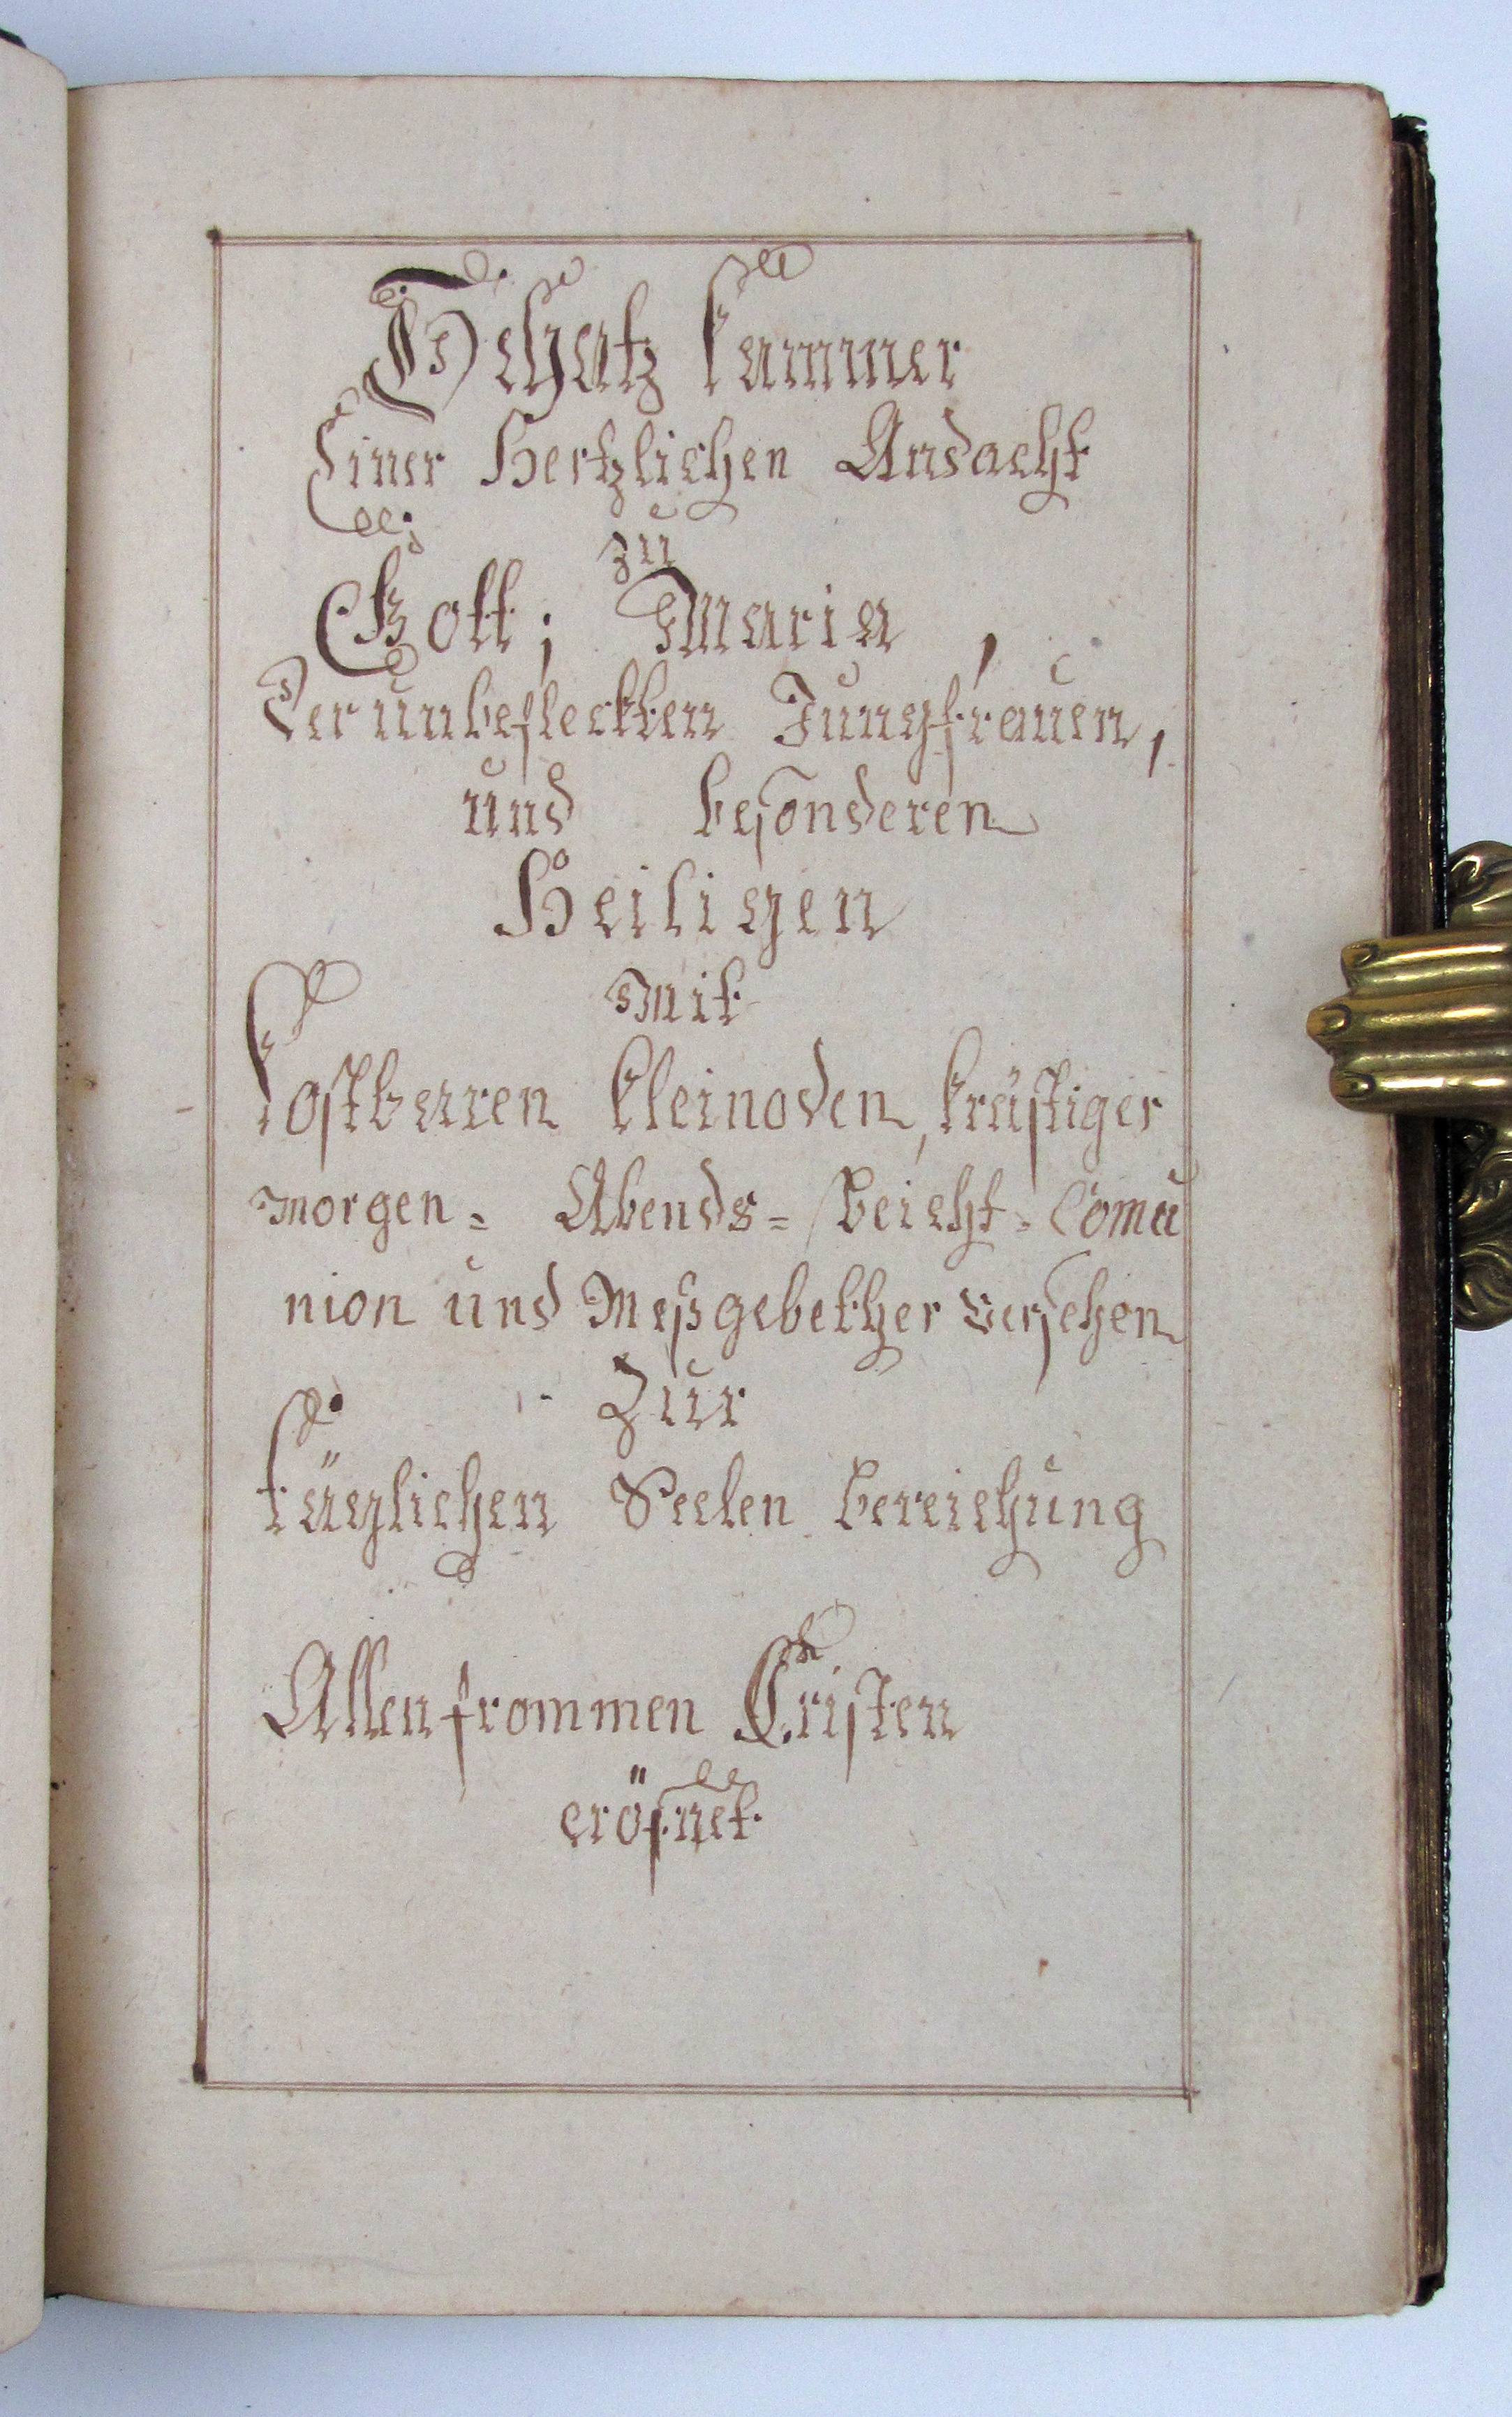 Schatz kammer
Einer Hertzlichen Andacht
zu
Gott; Maria,
Der unbefleckten Jungfrauen,
und besonderen
Heiligen
Mit
kostbaren kleinoden, kräftiger
Morgen= Abends= Beicht= Comu
nion und Meßgebether versehen
Zur
täglichen Seelen bereichung
Allen frommen Cristen
eröfnet